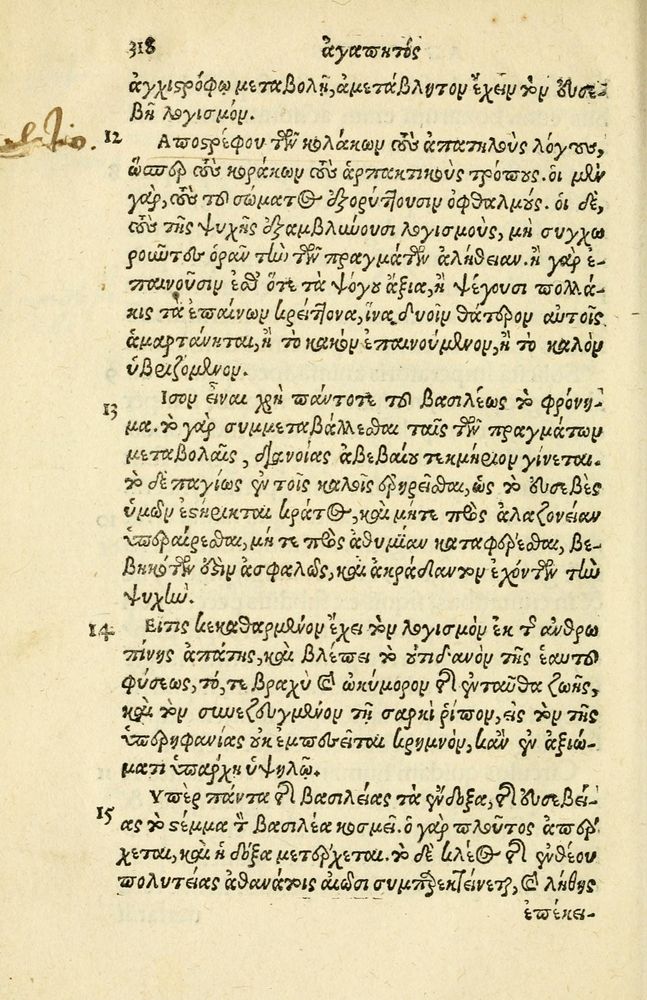 318 ἀγαπητός
ἀγχιστρόφῳ μεταβολῇ, ἀμετάβλητον ἔχειν τὸν εὐσε-
βῆ λογισμόν.
12 Αποστρέφου τῶν κολάκων τοὺς ἀπατηλοὺς λόγους,
ὥσπερ τοὺς κοράκων τοὺς ἁρπακτικοὺς τρόπους. ὁι μὲν
γὰρ, τοὺς τοῦ σώματος ἐξορύττουσιν ὀφθαλμούς. ὁι δὲ,
τοὺς τῆς ψυχῆς ἐξαμβλύνουσι λογισμοὺς, μὴ συγχω
ροῦντες ὁρᾶν τὴν τῶν πραγμάτων ἀλήθειαν. ἢ γὰρ ἐ-
παινοῦσιν ἔσθ' ὅτε τὰ ψόγου ἄξια, ἢ ψέγουσι πολλά-
κις τὰ ἐπαίνων κρείττονα, ἵνα δυοῖν θάτερον αὐτοῖς
ἁμαρτάνηται, ἢ τὸ κακὸν ἐπαινούμενον, ἢ τὸ καλὸν
ὑβριζόμενον.
13 Ισον εἶναι χρὴ πάντοτε τοῦ βασιλέως τὸ φρόνη-
μα. τὸ γὰρ συμμεταβάλλεσθαι ταῖς τῶν πραγμάτων
μεταβολαῖς, διανοίας ἀβεβαίου τεκμήριον γίνεται.
τὸ δὲ παγίως ἐν τοῖς καλοῖς ἐρηρεῖσθαι, ὡς τὸ εὐσεβὲς
ὑμῶν ἐστήρικται κράτος, καὶ μήτε πρὸς ἀλαζονείαν
ὑπεραίρεσθαι, μήτε πρὸς ἀθυμίαν καταφέρεσθαι, βε-
βηκότων ἐστὶν ἀσφαλῶς, καὶ ἀκράδαντον ἐχόντων τὴν
ψυχήν.
14 Ειτις κεκαθαρμένον ἔχει τὸν λογισμὸν ἐκ τῆς ἀνθρω
πίνης ἀπάτης, καὶ βλέπει τὸ οὐτιδανὸν τῆς ἑαυτοῦ
φύσεως, τό, τε βραχὺ καὶ ὠκύμορον τῆς ἐνταῦθα ζωῆς,
καὶ τὸν συνεζευγμένον τῇ σαρκὶ ῥύπον, εἰς τὸν τῆς
ὑπερηφανίας οὐκ ἐμπεσεῖται κρημνὸν, κἂν ἐν ἀξιώ-
ματι ὑπάρχῃ ὑψηλῷ.
15 Υπὲρ πάντα τῆς βασιλείας τὰ ἔνδοξα, τῆς εὐσεβεί-
ας τὸ στέμμα τὸν βασιλέα κοσμεῖ. ὁ γὰρ πλοῦτος ἀπέρ
χεται, καὶ ἡ δόξα μετέρχεται. τὸ δὲ κλέος τῆς ἐνθέου
πολιτείας ἀθανάτοις αἰῶσι συμπαρεκτείνεται, καὶ λήθης
ἐπέκει-